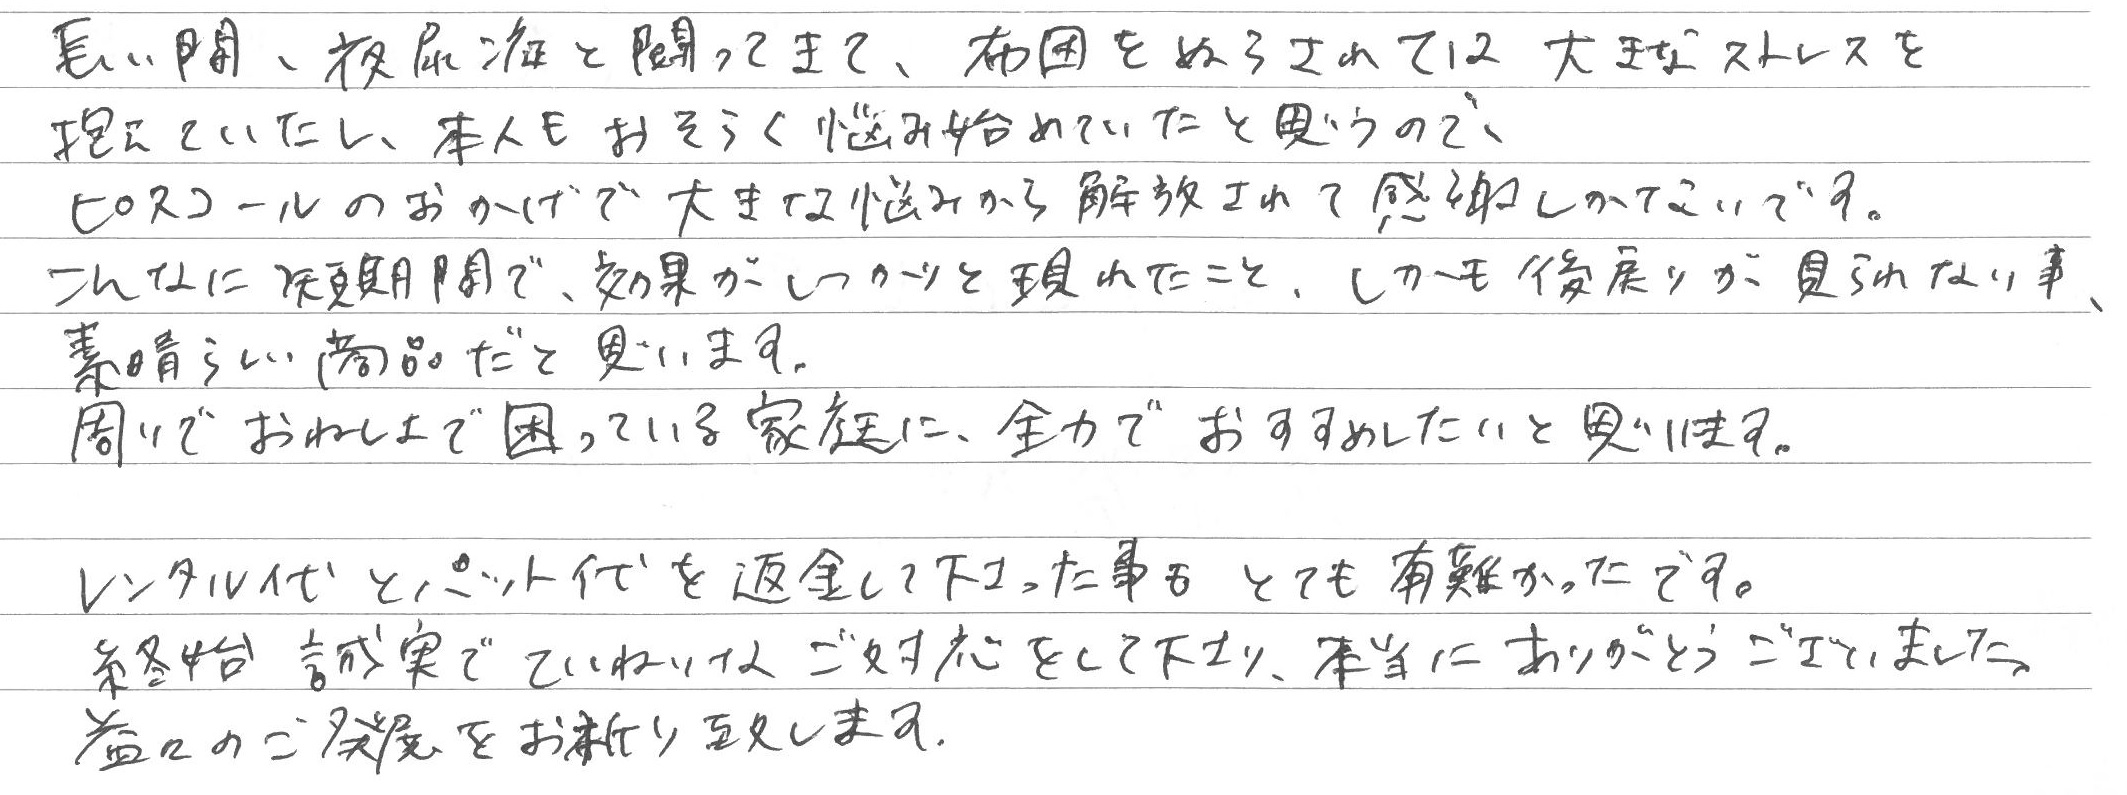 長い間、夜尿症と闘ってきて、布団をぬらされては大きなストレスを
抱えていたし、本人もおそらく悩み始めていたと思うので、
ピスコールのおかげで大きな悩みから解放されて感謝しかないです。
こんなに短期間で、効果がしっかりと現れたこと、しかも後戻りが見られない事、
素晴らしい商品だと思います。
周りでおねしょで困っている家庭に、全力でおすすめしたいと思います。
レンタル代とパット代を返金して下さった事もとても有難かったです。
終始誠実でていねいなご対応をして下さり、本当にありがとうございました。
益々のご発展をお祈り致します。